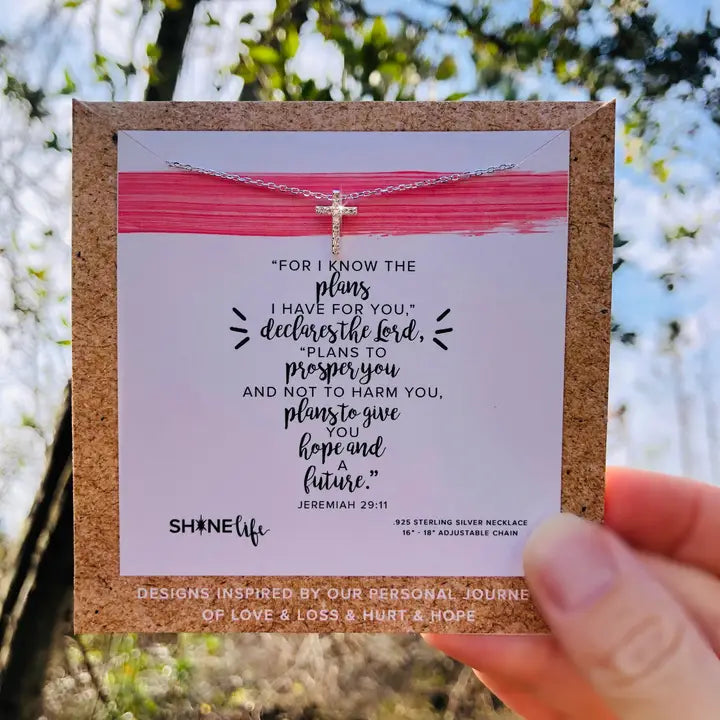 “FOR I KNOW THE
plans
I HAVE FOR YOU,”
declares the Lord,
“PLANS TO
prosper you
AND NOT TO HARM YOU,
plans to give
YOU
hope and
A
future.”
JEREMIAH 29:11
SHINE life
.925 STERLING SILVER NECKLACE
16" - 18" ADJUSTABLE CHAIN
DESIGNS INSPIRED BY OUR PERSONAL JOURNE
OF LOVE & LOSS & HURT & HOPE